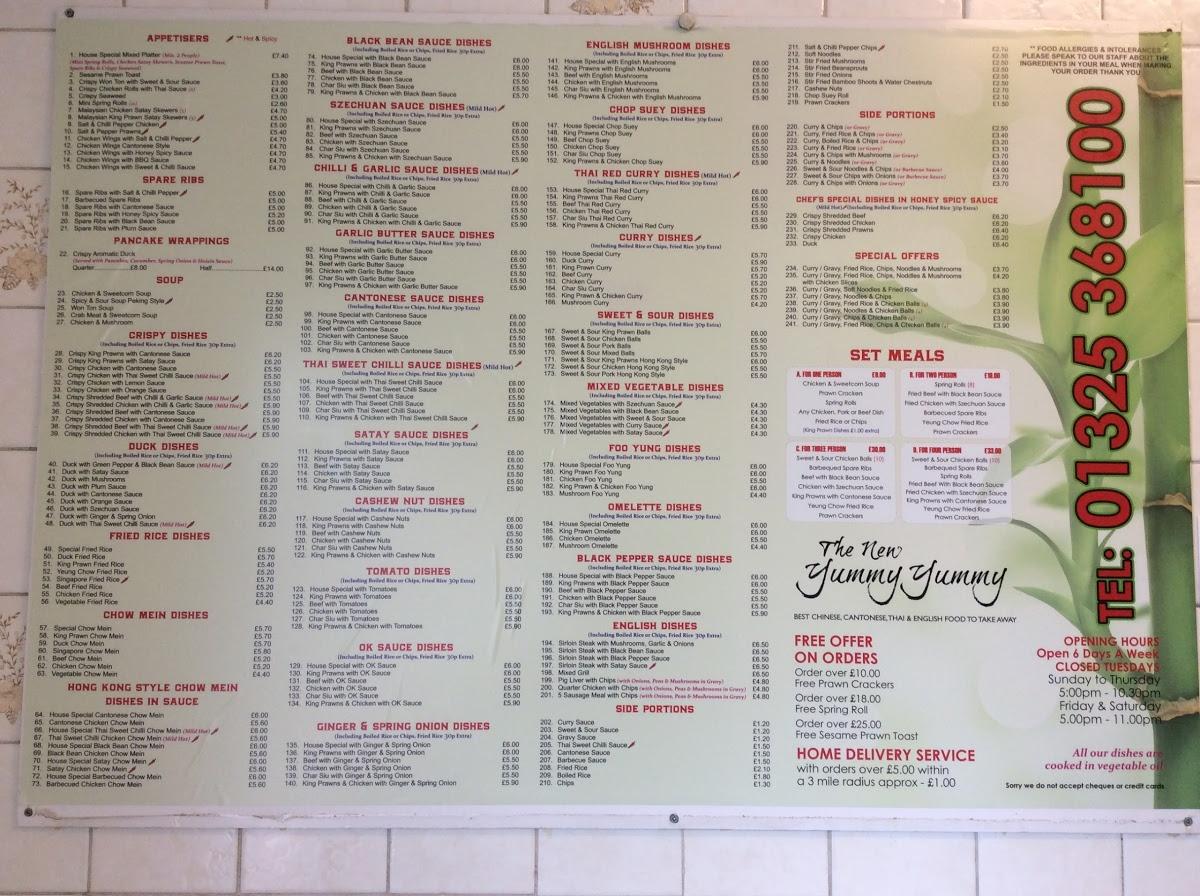 APPETISERS ** Hot & Spicy
1. House Special Mixed Platter (Min. 2 People) £7.40
(Mini Spring Rolls, Chicken Satay Skewers, Sesame Prawn Toast, Spare Ribs & Crispy Seaweed)
2. Sesame Prawn Toast £3.80
3. Crispy Won Ton with Sweet & Sour Sauce £3.60
4. Crispy Chicken Rolls with Thai Sauce £4.20
5. Crispy Seaweed £3.00
6. Mini Spring Rolls £2.60
7. Malaysian Chicken Satay Skewers £4.70
8. Malaysian King Prawn Satay Skewers £5.00
9. Salt & Chilli Pepper Chicken £5.00
10. Salt & Pepper Prawns £5.40
11. Chicken Wings with Salt & Chilli Pepper £4.70
12. Chicken Wings Cantonese Style £4.70
13. Chicken Wings with Honey Spicy Sauce £4.70
14. Chicken Wings with BBQ Sauce £4.70
15. Chicken Wings with Sweet & Chilli Sauce £4.70
SPARE RIBS
16. Spare Ribs with Salt & Chilli Pepper £5.00
17. Barbecued Spare Ribs £5.00
18. Spare Ribs with Cantonese Sauce £5.00
19. Spare Ribs with Honey Spicy Sauce £5.20
20. Spare Ribs with Black Bean Sauce £5.00
21. Spare Ribs with Plum Sauce £5.00
PANCAKE WRAPPINGS
22. Crispy Aromatic Duck
(Served with Pancakes, Cucumber, Spring Onion & Hoisin Sauce)
Quarter £8.00 Half £14.00
SOUP
23. Chicken & Sweetcorn Soup £2.50
24. Spicy & Sour Soup Peking Style £2.50
25. Won Ton Soup £2.50
26. Crab Meat & Sweetcorn Soup £2.50
27. Chicken & Mushroom £2.50
CRISPY DISHES
(Including Boiled Rice or Chips, Fried Rice 30p Extra)
28. Crispy King Prawns with Cantonese Sauce £6.20
29. Crispy King Prawns with Satay Sauce £6.20
30. Crispy Chicken with Cantonese Sauce £5.50
31. Crispy Chicken with Thai Sweet Chilli Sauce (Mild Hot) £5.50
32. Crispy Chicken with Lemon Sauce £5.50
33. Crispy Chicken with Orange Sauce £5.50
34. Crispy Shredded Beef with Chilli & Garlic Sauce (Mild Hot) £5.90
35. Crispy Shredded Chicken with Chilli & Garlic Sauce (Mild Hot) £5.90
36. Crispy Shredded Beef with Cantonese Sauce £5.90
37. Crispy Shredded Chicken with Cantonese Sauce £5.90
38. Crispy Shredded Beef with Thai Sweet Chilli Sauce (Mild Hot) £5.90
39. Crispy Shredded Chicken with Thai Sweet Chilli Sauce (Mild Hot) £5.90
DUCK DISHES
(Including Boiled Rice or Chips, Fried Rice 30p Extra)
40. Duck with Green Pepper & Black Bean Sauce (Mild Hot) £6.20
41. Duck with Satay Sauce £6.20
42. Duck with Mushrooms £6.20
43. Duck with Plum Sauce £6.20
44. Duck with Cantonese Sauce £6.20
45. Duck with Orange Sauce £6.20
46. Duck with Szechuan Sauce £6.20
47. Duck with Ginger & Spring Onion £6.20
48. Duck with Thai Sweet Chilli Sauce (Mild Hot) £6.20
FRIED RICE DISHES
49. Special Fried Rice £5.50
50. Duck Fried Rice £5.70
51. King Prawn Fried Rice £5.40
52. Yeung Chow Fried Rice £5.20
53. Singapore Fried Rice £5.70
54. Beef Fried Rice £5.20
55. Chicken Fried Rice £5.20
56. Vegetable Fried Rice £4.40
CHOW MEIN DISHES
57. Special Chow Mein £5.70
58. King Prawn Chow Mein £5.70
59. Duck Chow Mein £5.70
60. Singapore Chow Mein £5.80
61. Beef Chow Mein £5.20
62. Chicken Chow Mein £5.20
63. Vegetable Chow Mein £4.40
HONG KONG STYLE CHOW MEIN
DISHES IN SAUCE
64. House Special Cantonese Chow Mein £6.00
65. Cantonese Chicken Chow Mein £5.60
66. House Special Thai Sweet Chilli Chow Mein (Mild Hot) £6.00
67. Thai Sweet Chilli Chicken Chow Mein (Mild Hot) £5.60
68. House Special Black Bean Chow Mein £6.00
69. Black Bean Chicken Chow Mein £5.60
70. House Special Satay Chow Mein £6.00
71. Satay Chicken Chow Mein £5.60
72. House Special Barbecued Chow Mein £6.00
73. Barbecued Chicken Chow Mein £5.60
BLACK BEAN SAUCE DISHES
(Including Boiled Rice or Chips, Fried Rice 30p Extra)
74. House Special with Black Bean Sauce £6.00
75. King Prawns with Black Bean Sauce £6.00
76. Beef with Black Bean Sauce £5.50
77. Chicken with Black Bean Sauce £5.50
78. Char Siu with Black Bean Sauce £5.50
79. King Prawns & Chicken with Black Bean Sauce £5.70
SZECHUAN SAUCE DISHES (Mild Hot)
(Including Boiled Rice or Chips, Fried Rice 30p Extra)
80. House Special with Szechuan Sauce £6.00
81. King Prawns with Szechuan Sauce £6.00
82. Beef with Szechuan Sauce £5.50
83. Chicken with Szechuan Sauce £5.50
84. Char Siu with Szechuan Sauce £5.50
85. King Prawns & Chicken with Szechuan Sauce £5.90
CHILLI & GARLIC SAUCE DISHES (Mild Hot)
(Including Boiled Rice or Chips, Fried Rice 30p Extra)
86. House Special with Chilli & Garlic Sauce £6.00
87. King Prawns with Chilli & Garlic Sauce £6.00
88. Beef with Chilli & Garlic Sauce £5.50
89. Chicken with Chilli & Garlic Sauce £5.50
90. Char Siu with Chilli & Garlic Sauce £5.50
91. King Prawns & Chicken with Chilli & Garlic Sauce £5.90
GARLIC BUTTER SAUCE DISHES
(Including Boiled Rice or Chips, Fried Rice 30p Extra)
92. House Special with Garlic Butter Sauce £6.00
93. King Prawns with Garlic Butter Sauce £6.00
94. Beef with Garlic Butter Sauce £5.50
95. Chicken with Garlic Butter Sauce £5.50
96. Char Siu with Garlic Butter Sauce £5.50
97. King Prawns & Chicken with Garlic Butter Sauce £5.90
CANTONESE SAUCE DISHES
(Including Boiled Rice or Chips, Fried Rice 30p Extra)
98. House Special with Cantonese Sauce £6.00
99. King Prawns with Cantonese Sauce £6.00
100. Beef with Cantonese Sauce £5.50
101. Chicken with Cantonese Sauce £5.50
102. Char Siu with Cantonese Sauce £5.50
103. King Prawns & Chicken with Cantonese Sauce £5.90
THAI SWEET CHILLI SAUCE DISHES (Mild Hot)
(Including Boiled Rice or Chips, Fried Rice 30p Extra)
104. House Special with Thai Sweet Chilli Sauce £6.00
105. King Prawns with Thai Sweet Chilli Sauce £6.00
106. Beef with Thai Sweet Chilli Sauce £5.50
107. Chicken with Thai Sweet Chilli Sauce £5.50
109. Char Siu with Thai Sweet Chilli Sauce £5.50
110. King Prawns & Chicken with Thai Sweet Chilli Sauce £5.90
SATAY SAUCE DISHES
(Including Boiled Rice or Chips, Fried Rice 30p Extra)
111. House Special with Satay Sauce £6.00
112. King Prawns with Satay Sauce £6.00
113. Beef with Satay Sauce £5.50
114. Chicken with Satay Sauce £5.50
115. Char Siu with Satay Sauce £5.50
116. King Prawns & Chicken with Satay Sauce £5.90
CASHEW NUT DISHES
(Including Boiled Rice or Chips, Fried Rice 30p Extra)
117. House Special with Cashew Nuts £6.00
118. King Prawns with Cashew Nuts £6.00
119. Beef with Cashew Nuts £5.50
120. Chicken with Cashew Nuts £5.50
121. Char Siu with Cashew Nuts £5.50
122. King Prawns & Chicken with Cashew Nuts £5.90
TOMATO DISHES
(Including Boiled Rice or Chips, Fried Rice 30p Extra)
123. House Special with Tomatoes £6.00
124. King Prawns with Tomatoes £6.00
125. Beef with Tomatoes £5.50
126. Chicken with Tomatoes £5.50
127. Char Siu with Tomatoes £5.50
128. King Prawns & Chicken with Tomatoes £5.90
OK SAUCE DISHES
(Including Boiled Rice or Chips, Fried Rice 30p Extra)
129. House Special with OK Sauce £6.00
130. King Prawns with OK Sauce £6.00
131. Beef with OK Sauce £5.50
132. Chicken with OK Sauce £5.50
133. Char Siu with OK Sauce £5.50
134. King Prawns & Chicken with OK Sauce £5.90
GINGER & SPRING ONION DISHES
(Including Boiled Rice or Chips, Fried Rice 30p Extra)
135. House Special with Ginger & Spring Onion £6.00
136. King Prawns with Ginger & Spring Onion £6.00
137. Beef with Ginger & Spring Onion £5.50
138. Chicken with Ginger & Spring Onion £5.50
139. Char Siu with Ginger & Spring Onion £5.50
140. King Prawns & Chicken with Ginger & Spring Onion £5.90
ENGLISH MUSHROOM DISHES
(Including Boiled Rice or Chips, Fried Rice 30p Extra)
141. House Special with English Mushrooms £6.00
142. King Prawns with English Mushrooms £6.00
143. Beef with English Mushrooms £5.50
144. Chicken with English Mushrooms £5.50
145. Char Siu with English Mushrooms £5.50
146. King Prawns & Chicken with English Mushrooms £5.90
CHOP SUEY DISHES
(Including Boiled Rice or Chips, Fried Rice 30p Extra)
147. House Special Chop Suey £6.00
148. King Prawns Chop Suey £6.00
149. Beef Chop Suey £5.50
150. Chicken Chop Suey £5.50
151. Char Siu Chop Suey £5.50
152. King Prawns & Chicken Chop Suey £5.90
THAI RED CURRY DISHES (Mild Hot)
(Including Boiled Rice or Chips, Fried Rice 30p Extra)
153. House Special Thai Red Curry £6.00
154. King Prawns Thai Red Curry £6.00
155. Beef Thai Red Curry £5.50
156. Chicken Thai Red Curry £5.50
157. Char Siu Thai Red Curry £5.50
158. King Prawns & Chicken Thai Red Curry £5.90
CURRY DISHES
(Including Boiled Rice or Chips, Fried Rice 30p Extra)
159. House Special Curry £5.70
160. Duck Curry £5.90
161. King Prawn Curry £5.70
162. Beef Curry £5.20
163. Chicken Curry £5.20
164. Char Siu Curry £5.20
165. King Prawn & Chicken Curry £5.70
166. Mushroom Curry £4.20
SWEET & SOUR DISHES
(Including Boiled Rice or Chips, Fried Rice 30p Extra)
167. Sweet & Sour King Prawn Balls £6.00
168. Sweet & Sour Chicken Balls £5.50
169. Sweet & Sour Pork Balls £5.50
170. Sweet & Sour Mixed Balls £5.70
171. Sweet & Sour King Prawns Hong Kong Style £6.00
172. Sweet & Sour Chicken Hong Kong Style £5.50
173. Sweet & Sour Pork Hong Kong Style £5.50
MIXED VEGETABLE DISHES
(Including Boiled Rice or Chips, Fried Rice 30p Extra)
174. Mixed Vegetables with Szechuan Sauce £4.30
175. Mixed Vegetables with Black Bean Sauce £4.30
176. Mixed Vegetables with Sweet & Sour Sauce £4.30
177. Mixed Vegetables with Curry Sauce £4.30
178. Mixed Vegetables with Satay Sauce £4.30
FOO YUNG DISHES
(Including Boiled Rice or Chips, Fried Rice 30p Extra)
179. House Special Foo Yung £6.00
180. King Prawn Foo Yung £6.00
181. Chicken Foo Yung £5.50
182. King Prawn & Chicken Foo Yung £6.00
183. Mushroom Foo Yung £4.40
OMELETTE DISHES
(Including Boiled Rice or Chips, Fried Rice 30p Extra)
184. House Special Omelette £6.00
185. King Prawn Omelette £6.00
186. Chicken Omelette £5.50
187. Mushroom Omelette £4.40
BLACK PEPPER SAUCE DISHES
(Including Boiled Rice or Chips, Fried Rice 30p Extra)
188. House Special with Black Pepper Sauce £6.00
189. King Prawns with Black Pepper Sauce £6.00
190. Beef with Black Pepper Sauce £5.50
191. Chicken with Black Pepper Sauce £5.50
192. Char Siu with Black Pepper Sauce £5.50
193. King Prawns & Chicken with Black Pepper Sauce £5.90
ENGLISH DISHES
(Including Boiled Rice or Chips, Fried Rice 30p Extra)
194. Sirloin Steak with Mushrooms, Garlic & Onions £6.50
195. Sirloin Steak with Black Bean Sauce £6.50
196. Sirloin Steak with Black Pepper Sauce £6.50
197. Sirloin Steak with Satay Sauce £6.50
198. Mixed Grill £6.50
199. Pig Liver with Chips (with Onions, Peas & Mushrooms in Gravy) £4.80
200. Quarter Chicken with Chips (with Onions, Peas & Mushrooms in Gravy) £4.80
201. 5 Sausage Meal with Chips (with Onions, Peas & Mushrooms in Gravy) £4.80
SIDE PORTIONS
202. Curry Sauce £1.20
203. Sweet & Sour Sauce £1.20
204. Gravy Sauce £1.20
205. Thai Sweet Chilli Sauce £1.50
206. Cantonese Sauce £1.50
207. Barbecue Sauce £1.50
208. Fried Rice £2.10
209. Boiled Rice £1.80
210. Chips £1.30
211. Salt & Chilli Pepper Chips £2.10
212. Soft Noodles £2.50
213. Stir Fried Mushrooms £2.50
214. Stir Fried Beansprouts £2.50
215. Stir Fried Onions £2.50
216. Stir Fried Bamboo Shoots & Water Chestnuts £2.50
217. Cashew Nuts £2.70
218. Chop Suey Roll £2.10
219. Prawn Crackers £1.50
SIDE PORTIONS
220. Curry & Chips (or Gravy) £2.50
221. Curry, Fried Rice & Chips (or Gravy) £3.40
222. Curry, Boiled Rice & Chips (or Gravy) £3.10
223. Curry & Fried Rice (or Gravy) £3.10
224. Curry & Chips with Mushrooms (or Gravy) £3.70
225. Curry & Noodles (or Gravy) £3.60
226. Sweet & Sour Noodles & Chips (or Barbecue Sauce) £4.00
227. Sweet & Sour Chips with Onions (or Barbecue Sauce) £3.70
228. Curry & Chips with Onions (or Gravy) £3.70
CHEF'S SPECIAL DISHES IN HONEY SPICY SAUCE
(Mild Hot) (Including Boiled Rice or Chips, Fried Rice 30p Extra)
229. Crispy Shredded Beef £6.20
230. Crispy Shredded Chicken £6.20
231. Crispy Shredded Prawns £6.40
232. Crispy Chicken £6.20
233. Duck £6.40
SPECIAL OFFERS
234. Curry / Gravy, Fried Rice, Chips, Noodles & Mushrooms £3.70
235. Curry / Gravy, Fried Rice, Chips, Noodles & Mushrooms £4.20
with Chicken Slices
236. Curry / Gravy, Soft Noodles & Fried Rice £3.80
237. Curry / Gravy, Noodles & Chips £3.80
238. Curry / Gravy, Fried Rice & Chicken Balls £3.90
239. Curry / Gravy, Noodles & Chicken Balls £3.90
240. Curry / Gravy, Chips & Chicken Balls £3.90
241. Curry / Gravy, Fried Rice, Chips & Chicken Balls £3.90
SET MEALS
A. FOR ONE PERSON £8.00
Chicken & Sweetcorn Soup
Prawn Crackers
Spring Rolls
Any Chicken, Pork or Beef Dish
Fried Rice or Chips
(King Prawn Dishes £1.00 extra)
B. FOR TWO PERSON £18.00
Spring Rolls (8)
Fried Beef with Black Bean Sauce
Fried Chicken with Szechuan Sauce
Barbecued Spare Ribs
Yeung Chow Fried Rice
Prawn Crackers
C. FOR THREE PERSON £30.00
Sweet & Sour Chicken Balls (10)
Barbequed Spare Ribs
Beef with Black Bean Sauce
Chicken with Szechuan Sauce
King Prawns with Cantonese Sauce
Yeung Chow Fried Rice
Prawn Crackers
D. FOUR PERSON £33.00
Sweet & Sour Chicken Balls (10)
Barbequed Spare Ribs
Spring Rolls
Fried Beef With Black Bean Sauce
Fried Chicken with Szechuan Sauce
King Prawns with Cantonese Sauce
Yeung Chow Fried Rice
Prawn Crackers
The New
Yummy Yummy
BEST CHINESE, CANTONESE, THAI & ENGLISH FOOD TO TAKE AWAY
FREE OFFER
ON ORDERS
Order over £10.00
Free Prawn Crackers
Order over £18.00
Free Spring Roll
Order over £25.00
Free Sesame Prawn Toast
HOME DELIVERY SERVICE
with orders over £5.00 within
a 3 mile radius approx - £1.00
** FOOD ALLERGIES & INTOLERANCES
PLEASE SPEAK TO OUR STAFF ABOUT THE
INGREDIENTS IN YOUR MEAL WHEN MAKING
YOUR ORDER THANK YOU
TEL: 01325 368100
OPENING HOURS
Open 6 Days A Week
CLOSED TUESDAYS
Sunday to Thursday
5:00pm - 10.30pm
Friday & Saturday
5.00pm - 11.00pm
All our dishes are
cooked in vegetable oil
Sorry we do not accept cheques or credit cards